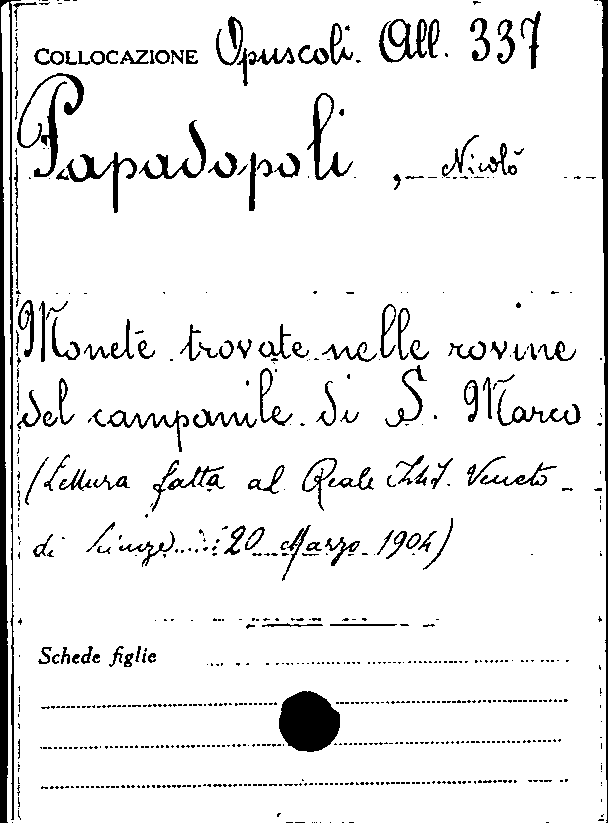 COLLOCAZIONE Opuscoli. All. 337
Papadopoli, Nicolò
Monete trovate nelle rovine
del campanile di S. Marco
(Lettura fatta al Reale Ist. Veneto
di Scienze 20 Marzo 1904)
Schede figlie